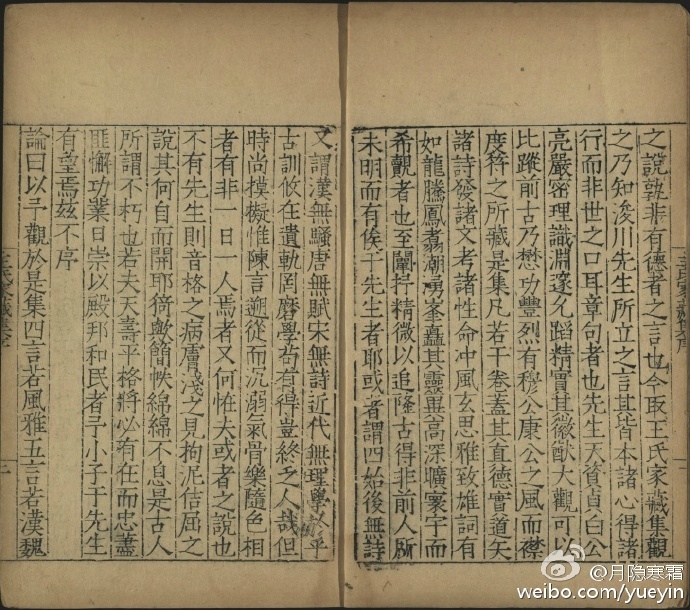 之說孰非有德者之言也今取王氏家藏集觀
之乃知浚川先生所立之言其皆本諸心得諸
行而非世之口耳章句者也先生天資貞白公
亮嚴密理識淵邃允蹈精實其徽猷大觀可以
比蹤前古乃懋功豐烈有穆公康公之風而襟
度符之所藏是集凡若干卷蓋其直德實道矢
諸詩發諸文者諸性命沖風玄思雅致雄詞有
如龍騰鳳翥潮湧峯矗其靈畀高深曠寰宇而
希覯者也至闡抒精微以追隆古得非前人所
未明而有俟于先生者耶或者謂四始後無詩
又謂漢無騷唐無賦宋無詩近代無理學以乎
古訓攸在遺軌罔磨學尚有得豈終乏人哉但
時尚摸擬惟陳言遡從而沉溺氣骨樂隨色相
者有非一日一人焉者又何怪夫或者之說也
不有先生則音格之病膚淺之見拘泥佶屈之
說其何自而開耶猗歟簡帙綿綿不息是古人
所謂不朽也若夫天壽平格將必有在而忠藎
匪懈功業日崇以殿邦和民者予小子于先生
有望焉茲不序
論曰以予觀於是集四言若風雅五言若漢魏
王氏家藏集序
月隐寒霜
weibo.com/yueyin